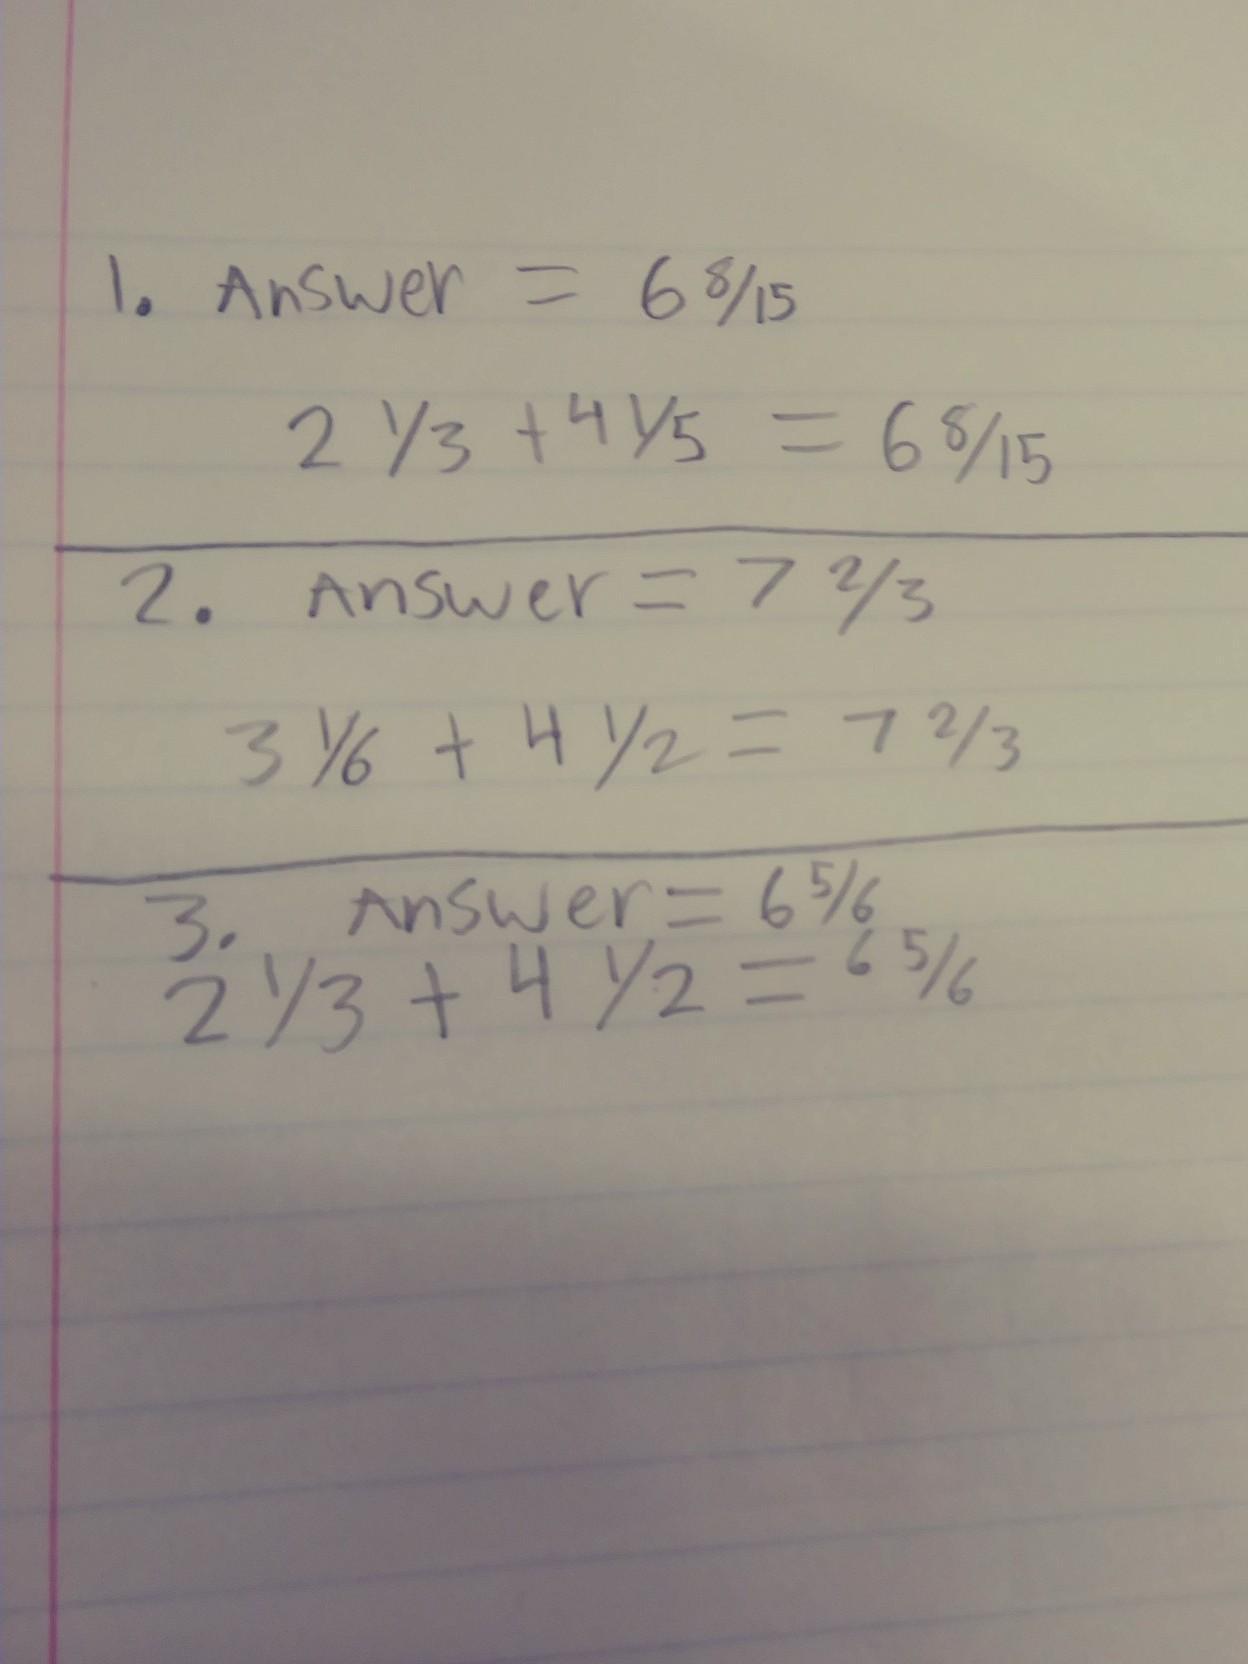 1. Answer = 6 8/15
2 1/3 + 4 1/5 = 6 8/15
2. Answer = 7 2/3
3 1/6 + 4 1/2 = 7 2/3
3. Answer = 6 5/6
2 1/3 + 4 1/2 = 6 5/6